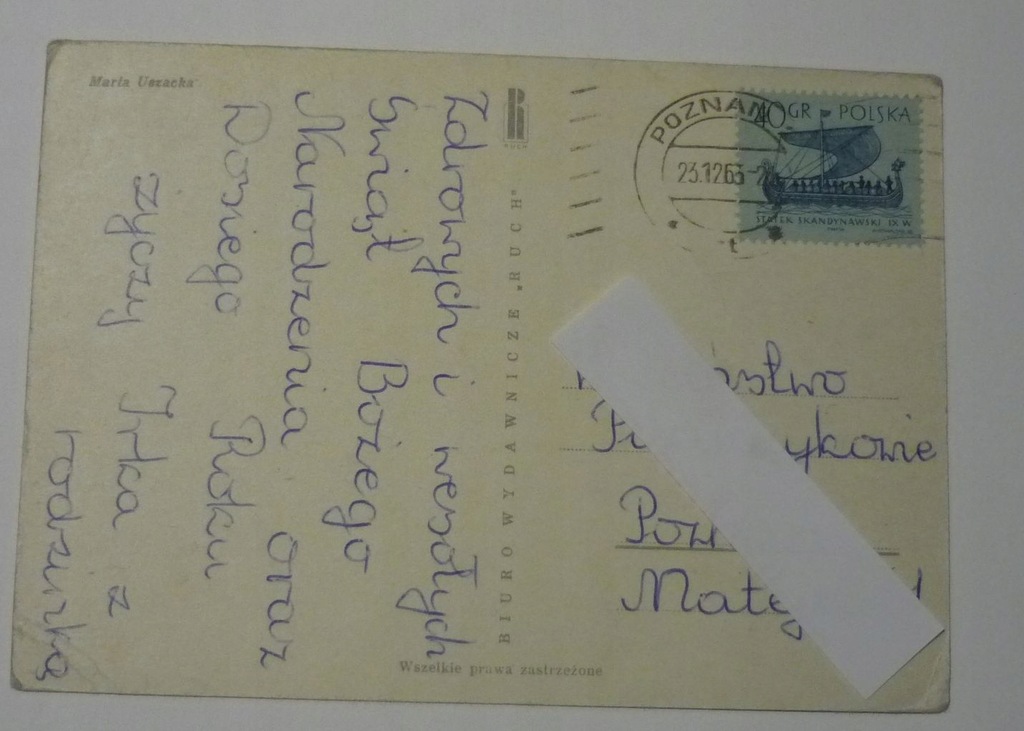 Maria Uszacka
Zdrowych i wesołych
Świąt Bożego
Narodzenia oraz
Dosiego Roku
życzy Irka z
rodzinką
RUCH
BIURO WYDAWNICZE „RUCH"
Wszelkie prawa zastrzeżone
POZNAŃ
23.12.63
40 GR POLSKA
STATEK SKANDYNAWSKI IX W